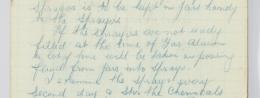 Sprayers is to be kept in Jars handy
to the Sprayers
If the sprayers are not ready
filled at the time of Gas Alarm
time will be taken in pouring
fluid from Jars into Sprayer.
Examine the Sprayer every
second day & Stir the Chemicals